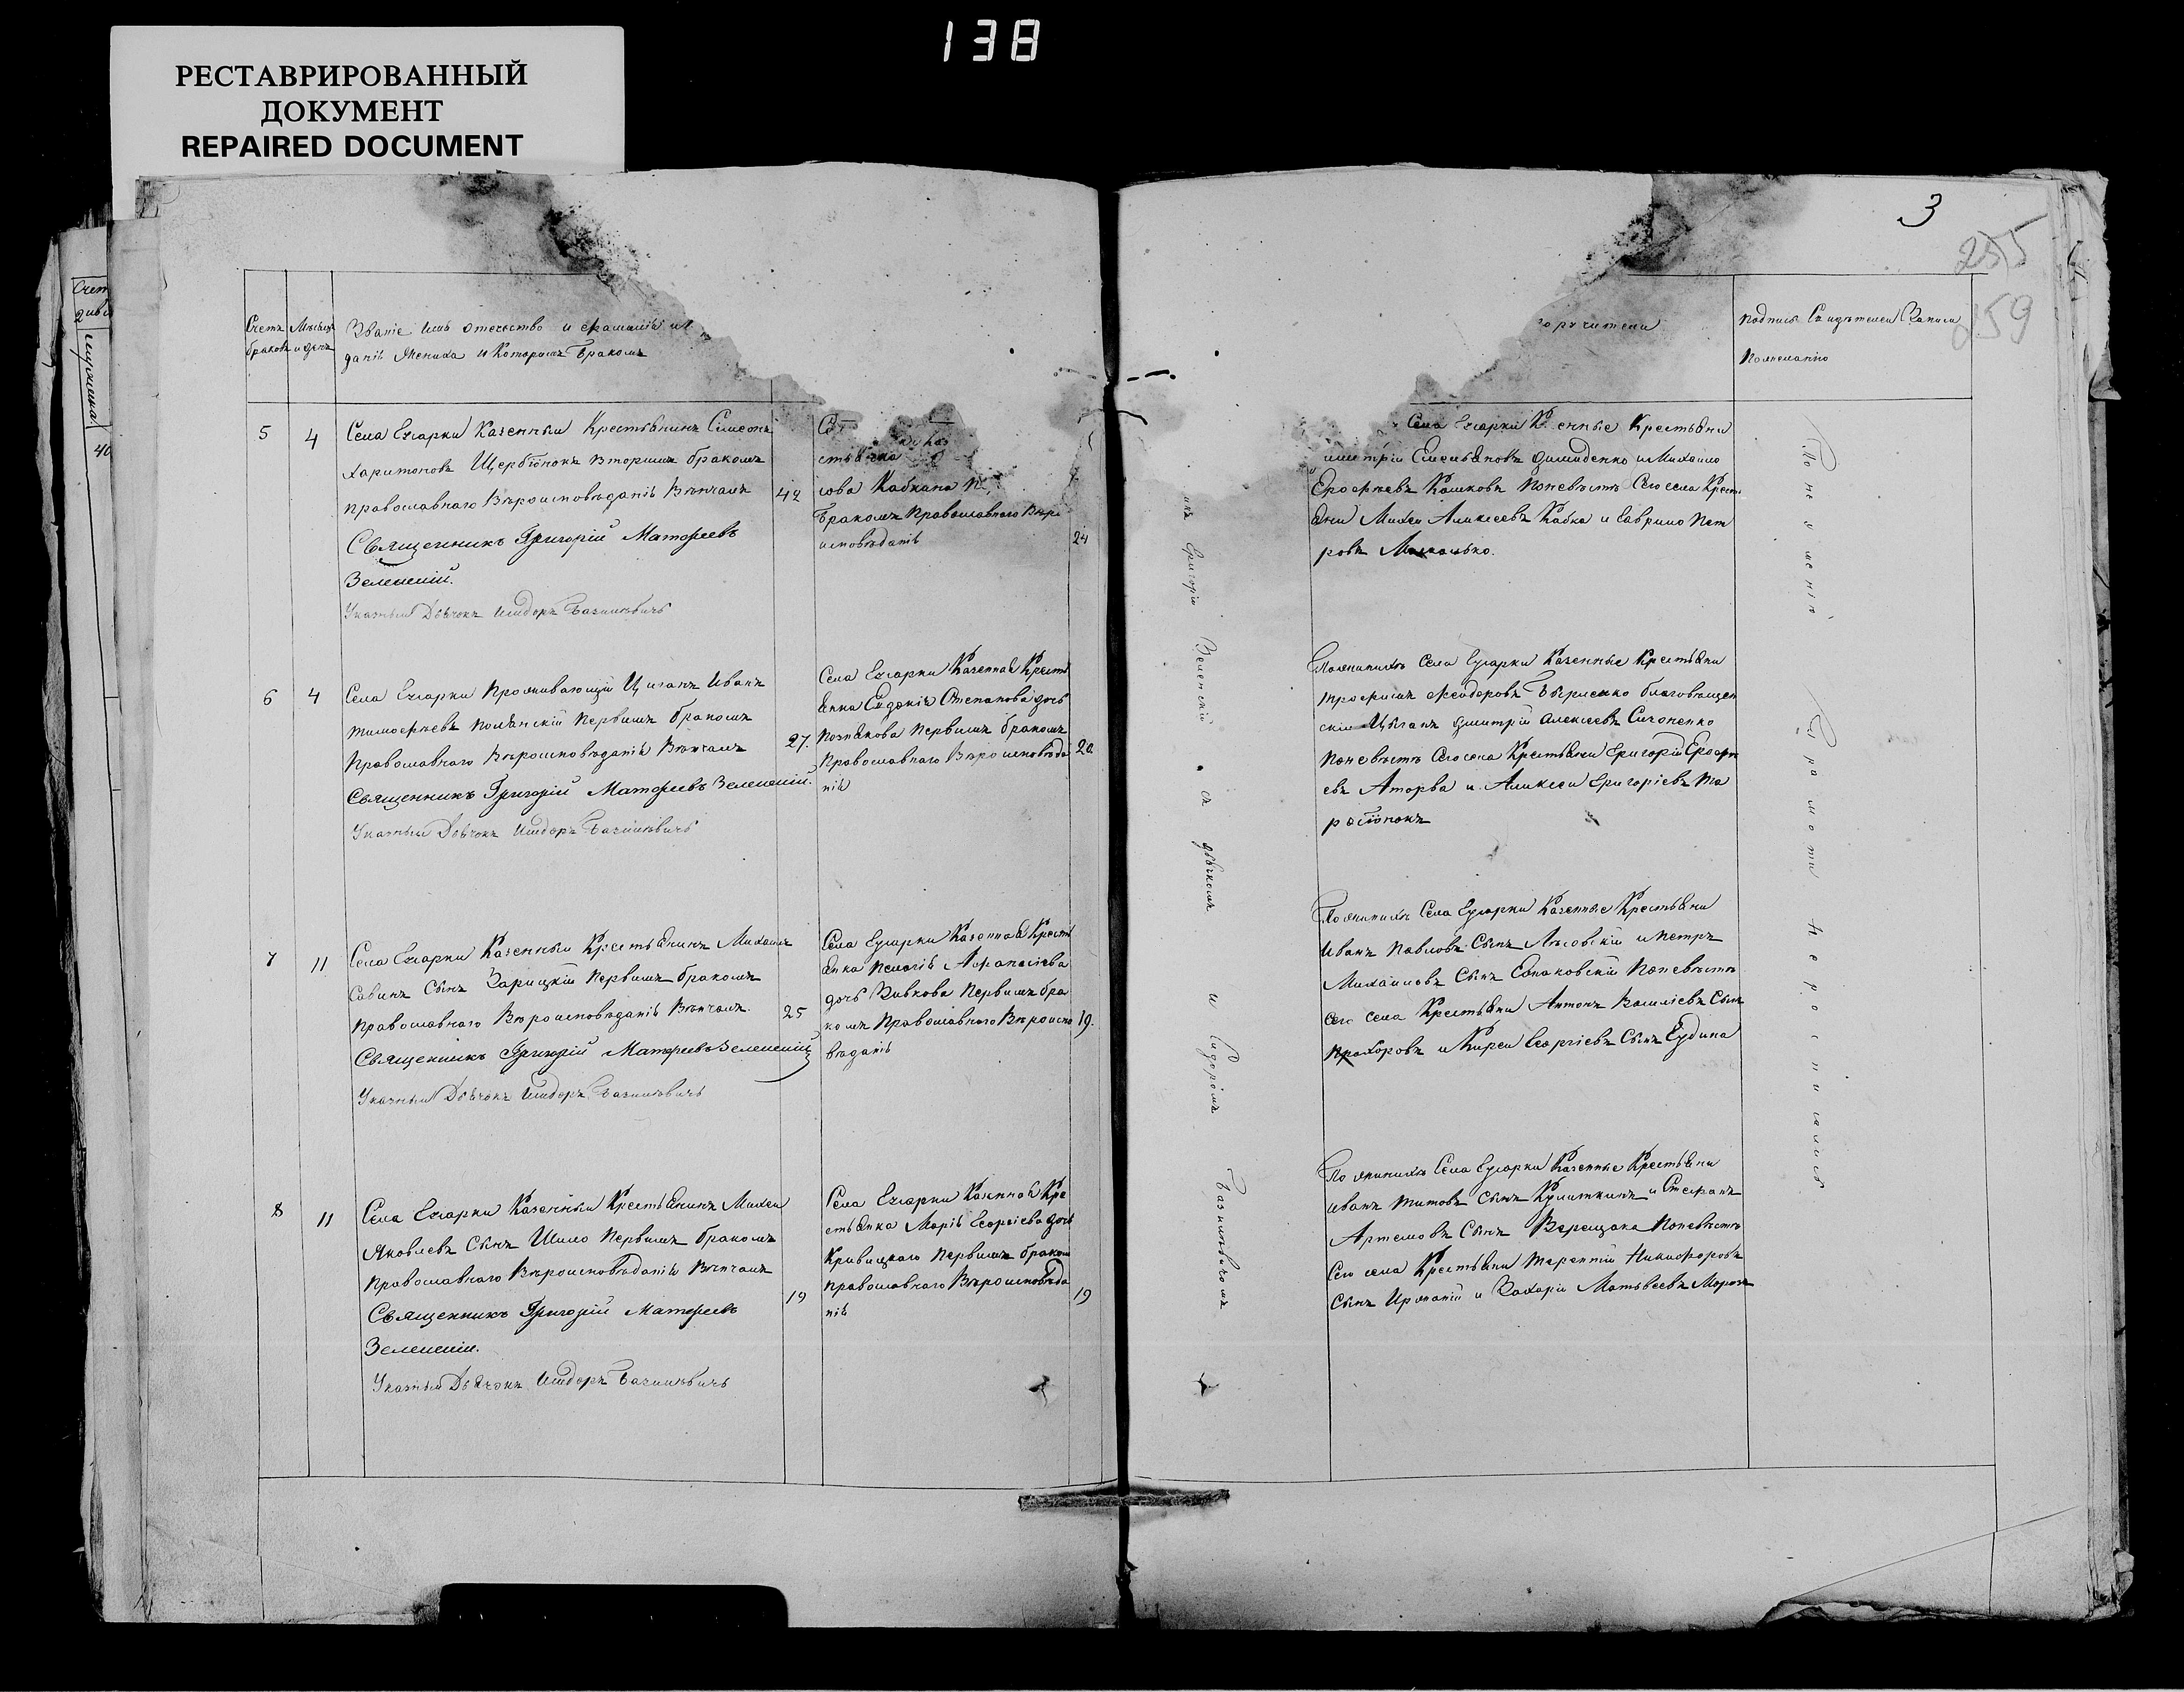 138
РЕСТАВРИРОВАННЫЙ
ДОКУМЕНТ
REPAIRED DOCUMENT
3
255
159
Счетъ
браковъ
Мѣсяцъ
и день
Званіе имь отечество и фамилія
даніь Жениха и Которымъ Бракомъ
поручители
подпись Свидѣтелей Записи
Пожеланію
5
4
Села Казенный Крестьянинъ Симеонъ
Харитоновъ Щербіонокъ вторымъ бракомъ
православнаго Вѣроисповѣданіь Вѣнчалъ
Священникъ Григорій Матѳеевъ
Зеленскій.
Указный Дьячокъ Исидоръ Базилевичь
42
стьянка
сова Кабкана
Бракомъ Православнаго Вѣро
исповѣданіь
24
Села Крестьяни
Емельяновъ Димиденко и Михайло
Ерофѣевъ Кашковъ Поневѣстѣ Сего села Крест
яни Михей Аликсеевъ Кабка и Гаврило Пет
ровъ
6
4
Села Проживающій Циганъ Иванъ
Тимофѣевъ Полянскій Первымъ бракомъ
Православнаго Вѣроисповѣданіь Вѣнчалъ
Священникъ Григорій Матѳеевъ Зеленскій.
Указный Дьячокъ Исидоръ Базилевичь
27.
Села Казенная Кресть
янка Евдокія Степанова дочь
Познякова Первымъ бракомъ
Православнаго Вѣроисповѣда
ніь
20
Пожинихѣ Села Казенные Крестьяни
Трофимъ Феодоровъ благовѣщен
скій Цыганъ Димитрій Алексѣевъ Сичоненко
Поневѣстѣ Сего села Крестьяни Григорій Ерофѣ
евъ Аторва и Аликсей Григоріевъ Та
расіонокъ
7
11
Села Казенный Крестьянинъ Михаилъ
Савинъ Сынъ Зарицкій Первымъ бракомъ
Православнаго Вѣроисповѣданіь Вѣнчалъ.
Священникъ Григорій Матѳеевъ Зеленскій
Указный Дьячокъ Исидоръ Базилевичь
25
Села Казенная Кресть
янка Пелагія Афанасіева
дочь Зивкова Первымъ бра
комъ Православнаго Вѣроиспо
вѣданіь
19.
Пожинихѣ Села Казенные Крестьяни
Иванъ Павловъ Сынъ Лисовскій и Петръ
Михайловъ Сынъ Поневѣстѣ
сего села Крестьяни Антонъ Василіевъ Сынъ
Прохоровъ и Кирей Георгіевъ Сынъ Гудина
8
11
Села Казенный Крестьянинъ Михей
Яковлевъ Сынъ Шило Первымъ бракомъ
Православнаго Вѣроисповѣданіь Вѣнчалъ
Священникъ Григорій Матѳеевъ
Зеленскій.
Указный Дьячокъ Исидоръ Базилевичь
19
Села Казенная Кре
стьянка Маріь Георгіева дочь
Кривицкаго Первымъ бракомъ
православнаго Вѣроисповѣда
ніь
19
Пожинихѣ Села Казенные Крестьяни
Иванъ Титовъ Сынъ Кулиткинъ и Стефанъ
Артемовъ Сынъ Верещака Поневѣстѣ
Сего села Крестьяни Терентій Никифоровъ
Сынъ и Захарій Матвѣевъ Морозъ
Григорій Зеленскій съ дьячкомъ Сидоромъ Базилевичомъ
Понеименіь Грамоти неросписались